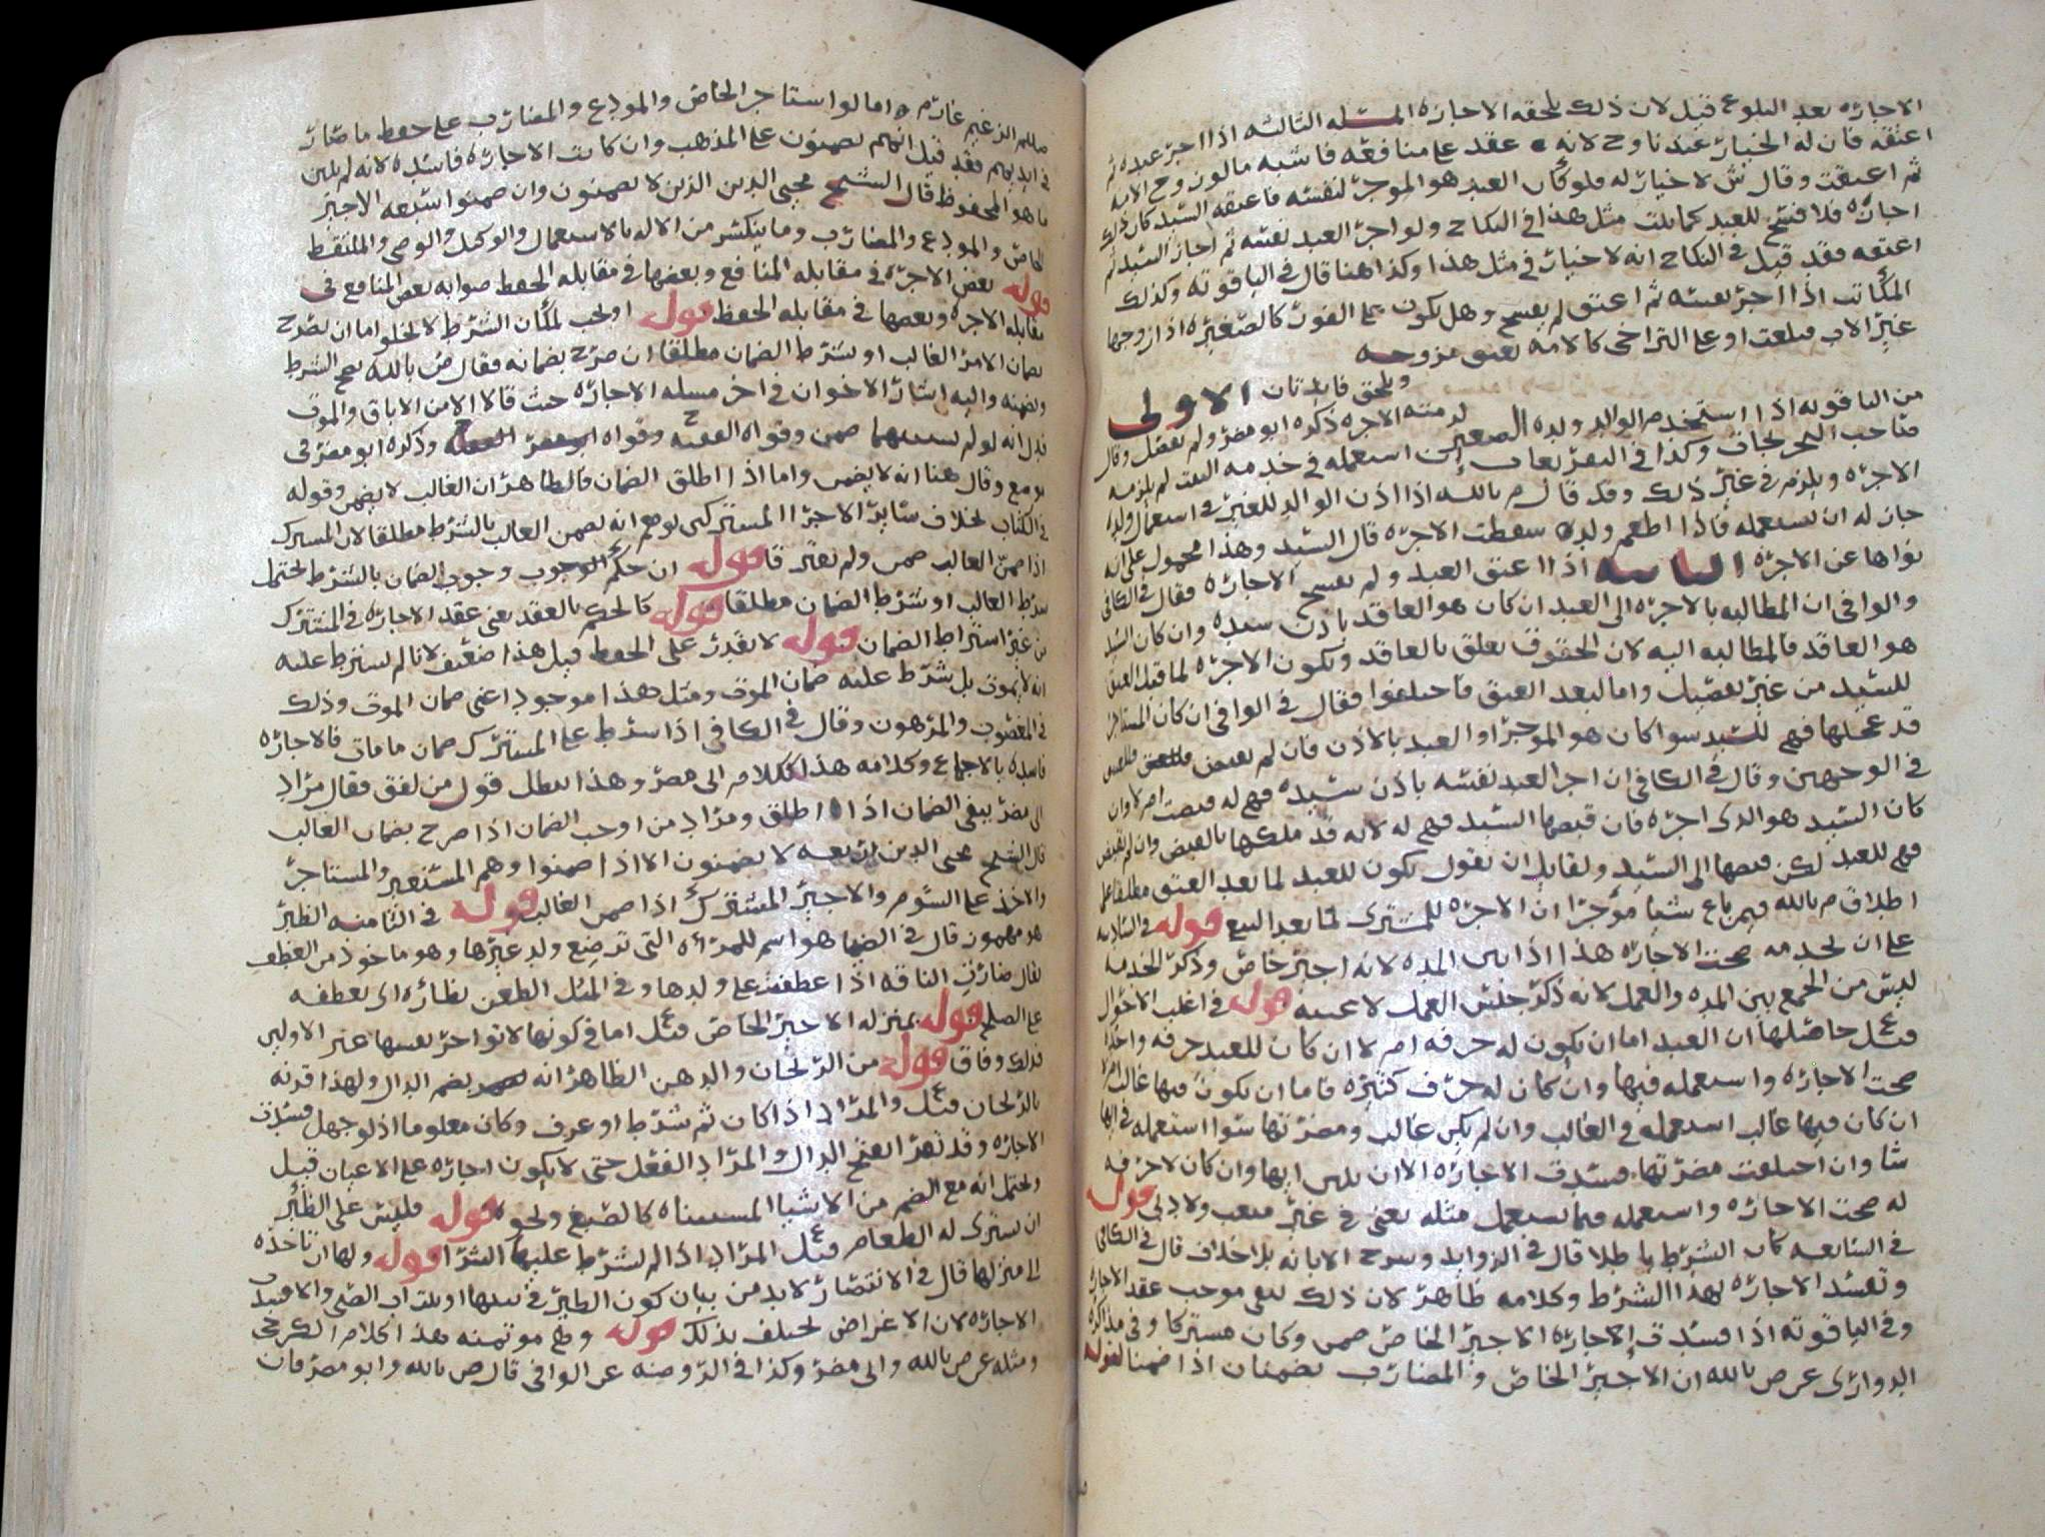 الاجاره بعد البلوغ قيل لان ذلك يلحقه الاجازه المسله الثالثه اذا اجر عبده ثم
اعتقه فان له الخيار عندنا وح لانه عقد على منافعه فاشبه ما لو زوج الامه
ثم اعتقت وقال ش لا خيار له فلو كان العبد هو الموجر لنفسه فاعتقه السيد كان ذلك
اجازه فلا فسخ للعبد كما قلت مثل هذا في النكاح ولو اجر العبد نفسه ثم اجاز السيد ثم
اعتقه فقد قيل في النكاح انه لا خيار في مثل هذا وكذا هنا قال في الياقوته وكذلك
المكاتب اذا اجر نفسه ثم اعتق لم يفسخ وهل يكون على الفور كالصغيره اذا زوجها
غير الاب فبلغت او على التراخي كالامه تعتق مزوجه
ويلحق فايدتان الاولى
من الياقوته اذا استخدم الوالد ولده الصغير لزمته الاجره ذكره ابو مضر ولم يفصل وقال
صاحب وكذا في استعمله في خدمه البيت لم يلزمه
الاجره ويلزم في غير ذلك وقد قال م بالله اذا اذن الوالد للغير في استعمال ولده
جاز له ان يستعمله فاذا اطعم ولده سقطت الاجره قال السيد وهذا محمول على انه
نواها عن الاجره الثانيه اذا اعتق العبد ولم يفسخ الاجاره فقال في الكافي
والوافي ان المطالبه بالاجره الى العبد ان كان هو العاقد باذن سيده وان كان السيد
هو العاقد فالمطالبه اليه لان الحقوق تعلق بالعاقد وتكون الاجره لما قبل العتق
للسيد من غير تفصيل واما لبعد العتق فاختلفوا فقال في الوافي ان كان المستاجر
قد عجلها فهي للسيد سوا كان هو الموجر او العبد بالاذن فان لم يقبض
في الوجهين وقال في الكافي ان اجر العبد نفسه باذن سيده فهي له قبضت ام لا وان
كان السيد هو الذي اجره فان قبضها السيد فهي له لانه قد ملكها بالقبض وان لم يقبض
فهي للعبد لكن قبضها الى السيد ولقايل ان يقول تكون للعبد لما بعد العتق مطلقا على
اطلاق م بالله فيمن باع شيا موجرا ان الاجره للمشتري لما بعد البيع قوله في
على ان يخدمه صحت الاجاره هذا اذا بين المده لانه اجير خاص وذكر الخدمه
ليس من الجمع بين المده والعمل لانه ذكر جنس العمل لا عينه قوله في اغلب الاحوال
قيل حاصلها ان العبد اما ان يكون له حرفه ام لا ان كان للعبد حرفه واحده
صحت الاجاره واستعمله فيها وان كان له حرف كثيره فاما ان يكون فيها غالب ام لا
ان كان فيها غالب استعمله في الغالب وان لم يكن غالب ومضرتها سوا استعمله في ايها
شا وان اختلفت مضرتها فسدت الاجاره الا ان يبين ايها وان كان لا حرفه
له صحت الاجاره واستعمله فيما يستعمل مثله يعني في غير متعب ولا دني قوله
في السابعه كان الشرط باطلا قال في الزوايد وشرح الابانه بلا خلاف قال في الكافي
وتفسد الاجاره بهذا الشرط وكلامه ظاهر لان ذلك نفي موجب عقد الاجاره
وفي الياقوته اذا فسدت الاجاره الاجير الخاص ضمن وكان مشتركا وفي مذاكره
الدواري عن ص بالله ان الاجير الخاص والمضارب يضمنان اذا ضمنا لقوله
صللم الزعيم غارم واما لو استاجر الخاص والمودع والمضارب على حفظ ما صار
في ايديهم فقد قيل انهم يضمنون على المذهب وان كانت الاجاره فاسده لانه لم يبين
ما هو المحفوظ قال الشيخ محيي الدين الذين لا يضمنون وان ضمنوا اربعه الاجير
الخاص والمودع والمضارب وما ينكسر من الاله بالاستعمال والوكيل والوصي والملتقط
قوله بعض الاجره في مقابله المنافع وبعضها في مقابله الحفظ صوابه بعض المنافع في
مقابله الاجره وبعضها في مقابله الحفظ قوله او يجب لمكان الشرط لا يخلو اما ان يصرح
بضمان الامر الغالب او بشرط الضمان مطلقا ان صرح بضمانه فقال ص بالله يصح الشرط
ويضمنه واليه اشار الاخوان في اخر مسله الاجاره حيث قالا الامن الاباق والموت
فدل انه لو لم يستثنهما ضمن وقواه الفقيه ح وقواه وذكره ابو مضر في
وقال هنا انه لا يضمن واما اذا اطلق الضمان فالظاهر ان الغالب لا يضمن وقوله
في الكتاب بخلاف سائر الاجرا المشتركين يوهم انه يضمن الغالب بالشرط مطلقا لان المشترك
اذا ضمن الغالب ضمن ولم يعتبر قا قوله ان حكم الوجوب وجوب الضمان بالشرط يحتمل
شرط الغالب او شرط الضمان مطلقا قوله كالحكم بالعقد يعني عقد الاجاره في المشترك
من غير اشتراط الضمان قوله لا يقدر على الحفظ قيل هذا ضعيف لانا لم نشترط عليه
انه لا يموت بل شرط عليه ضمان الموت ومثل هذا موجود اعني ضمان الموت وذلك
في المغصوب والمرهون وقال في الكافي اذا شرط على المشترك ضمان ما مات فالاجاره
فاسده بالاجماع وكلامه هذا ككلام ابي مضر وهذا يبطل قول من لفق فقال مراد
ابي مضر ينفي الضمان اذا اطلق ومراد من اوجب الضمان اذا صرح بضمان الغالب
قال الشيخ محيي الدين اربعه لا يضمنون الا اذا ضمنوا وهم المستعير والمستاجر
والاخذ على السوم والاجير المشترك اذا ضمن الغالب قوله في الثامنه الظئر
هو مهموز قال في الضيا هو اسم للمراه التي ترضع ولد غيرها وهو ماخوذ من العطف
يقال ضارت الناقه اذا عطفت على ولدها وفي المثل الطعن يظاره اي يعطفه
على الصلح قوله بمنزله الاجير الخاص قيل اما في كونها لا تواجر نفسها عن الاولين
فذلك وفاقا قوله من الريحان والدهن الظاهر انه بضم الدال ولهذا قرنه
بالريحان قيل والمراد اذا كان ثم شرط او عرف وكان معلوما اذ لو جهل فسدت
الاجاره وقد تقرا بفتح الدال والمراد الفعل حتى لا يكون اجاره على الاعيان قيل
ويحتمل انه مع الضم من الاشيا المستثناه كالصبغ ونحوه قوله فليس على الظئر
ان تشتري له الطعام قيل المراد اذا لم يشرط عليها الشرا قوله ولها ان تاخذه
الى منزلها قال في الانتصار لا بد من بيان كون الظئر في بيتها او بيت اب الصبي والا فسدت
الاجاره لان الاغراض تختلف بذلك قوله وهي موتمنه هذا كلام الكرخي
ومثله عن ص بالله وابي مضر وكذا في الروضه عن الوافي قال ص بالله وابو مضر فان